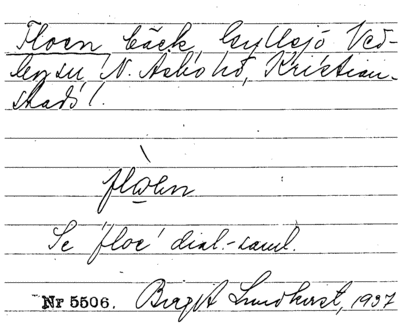 Floen, bäck, Gyllsjö Ved-
bysn, N. Åsbo hd, Kristian-
stads l.
flo̱en
Se 'floe' dial.-saml.
Nr 5506. Birgit Lundkvist, 1937